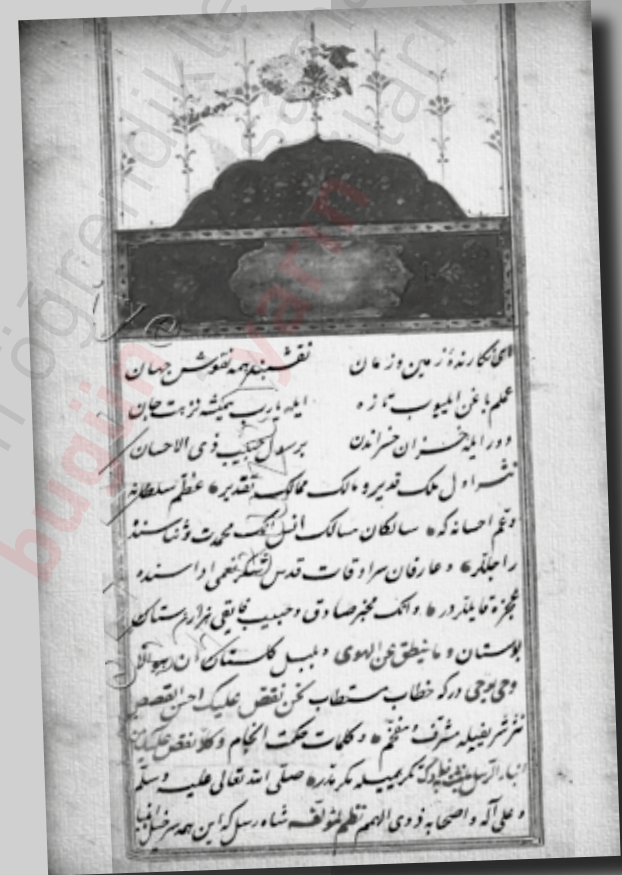 ای نکارندۀ زمین و زمان نقشبند همه نقوش جهان
علم باغن ایلیوب تازه ایله یارب همیشه نزهت جان
دور ایله خزان خسراندن برسول حبیب ذی الاحسان
اول ملک قدیر و مالک ممالک تقدیر عظم سلطانه
و عم احسانه که سالکان مسالک انسل انک محمدت و ثناسنده
راجللر و عارفان سرادقات قدس شکر نعمی اداسنده
عجزه قایللردر و انک مخبر صادق و حبیب فایقی هزاردستان
بوستان و ما ینطق عن الهوی و بلبل کلستان ان هو الا
وحی یوحی درکه خطاب مستطاب نحن نقص علیک احسن القصص
شریفیله مشرف و مفخم و کلمات حکمت انجام و کلا نقص علیک من
انباء الرسل تکریمیله مکرمدر صلی الله تعالی علیه و سلم
و علی آله و اصحابه ذوی الهمم نظم لمؤلفه شاه رسل که این همه سرخیل انبیا
bugün
yarın